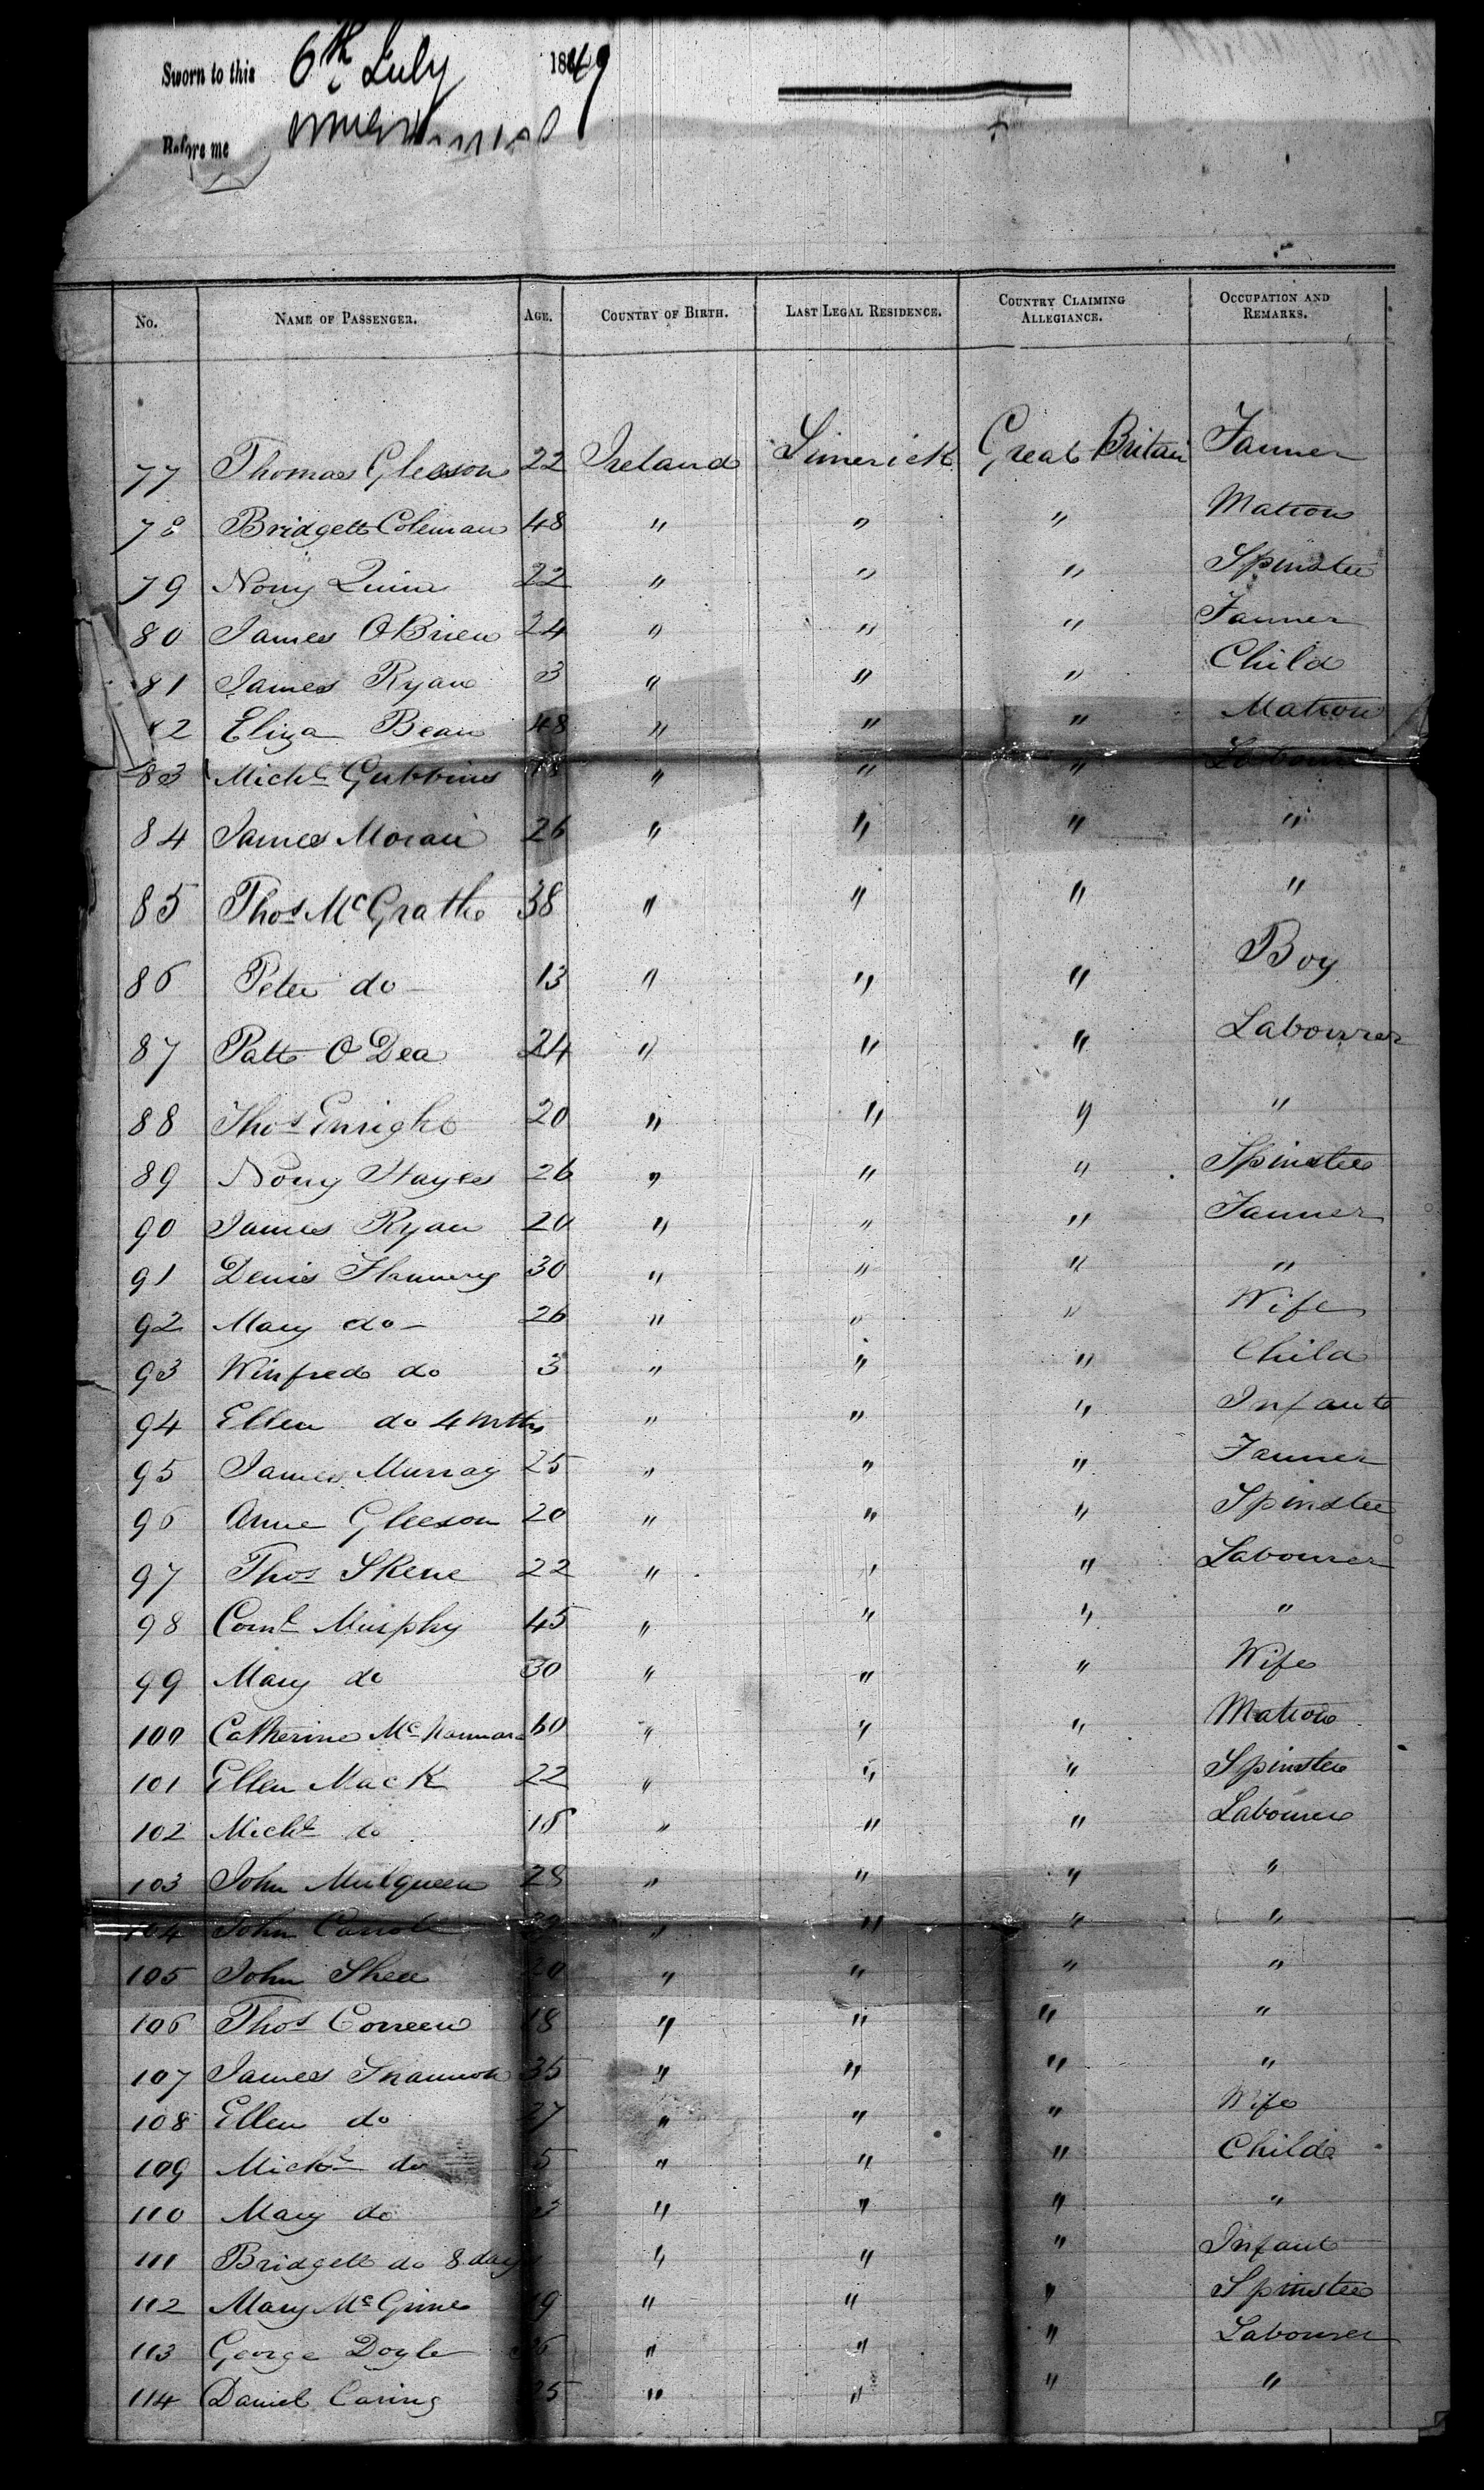 Sworn to this 6th July 1849
Before me
No. NAME OF PASSENGER. AGE. COUNTRY OF BIRTH. LAST LEGAL RESIDENCE. COUNTRY CLAIMING ALLEGIANCE. OCCUPATION AND REMARKS.
77 Thomas Gleeson 22 Ireland Limerick Great Britain Farmer
78 Bridgett Coleman 48 " " " Matron
79 Nony Quinn 22 " " " Spinster
80 James O Brien 24 " " " Farmer
81 James Ryan 3 " " " Child
82 Eliza Bean 48 " " " Matron
83 Michl Gubbins " " " Labourer
84 James Moran 26 " " " "
85 Thos McGrath 38 " " " "
86 Peter do 13 " " " Boy
87 Patt O Dea 24 " " " Labourer
88 Thos Enright 20 " " " "
89 Nony Hayes 26 " " " Spinster
90 James Ryan 20 " " " Farmer
91 Denis Flannery 30 " " " "
92 Mary do 26 " " " Wife
93 Winfred do 3 " " " Child
94 Ellen do 4 mths " " " Infant
95 James Murray 25 " " " Farmer
96 Anne Gleeson 20 " " " Spinster
97 Thos Skene 22 " " " Labourer
98 Cornl Murphy 45 " " " "
99 Mary do 30 " " " Wife
100 Catherine McNamara 60 " " " Matron
101 Ellen Mack 22 " " " Spinster
102 Michl do 18 " " " Labourer
103 John Mulqueen 28 " " " "
104 John Carroll " " " "
105 John Shea 20 " " " "
106 Thos Correen 18 " " " "
107 James Shannon 35 " " " "
108 Ellen do 27 " " " Wife
109 Michl do 5 " " " Child
110 Mary do 3 " " " "
111 Bridgett do 8 days " " " Infant
112 Mary Mc 19 " " " Spinster
113 George Doyle 26 " " " Labourer
114 Daniel 25 " " " "